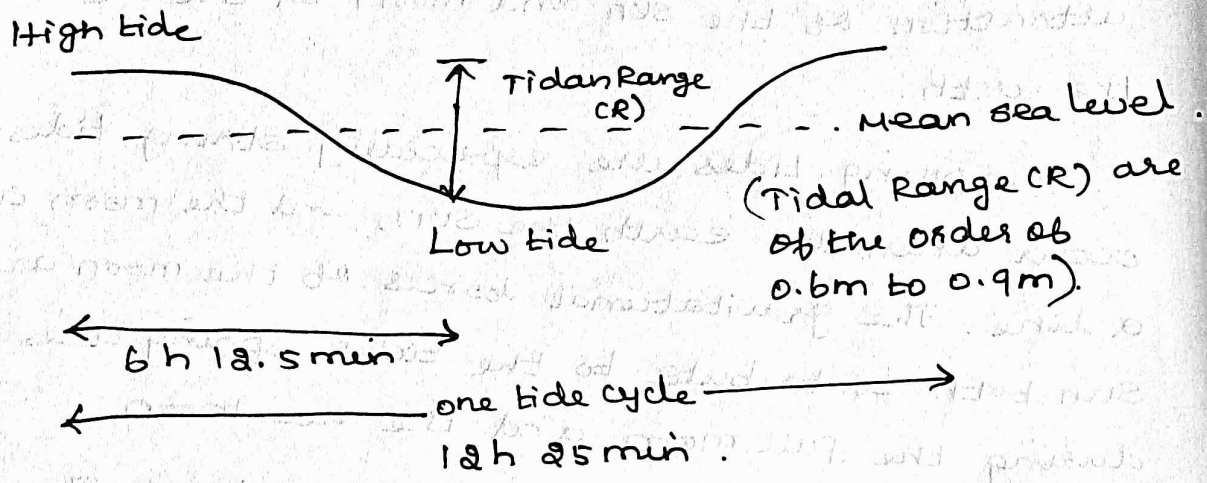 High tide
Tidan Range
(R)
Mean sea level.
(Tidal Range (R) are
of the order of
0.6m to 0.9m).
Low tide
6h 12.5 min
one tide cycle
12h 25 min.